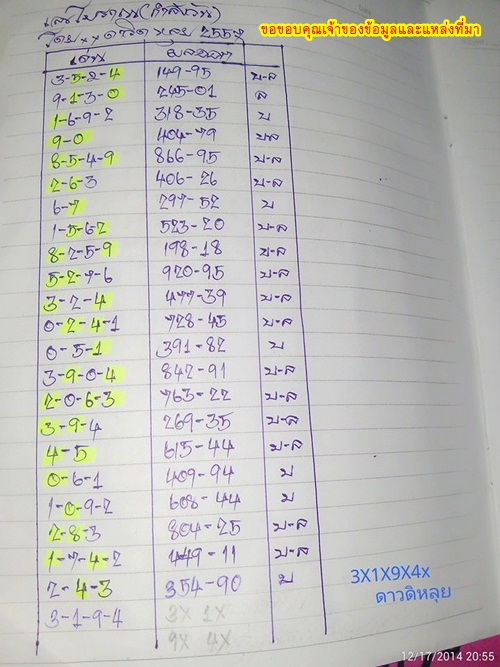 ขอขอบคุณเจ้าของข้อมูลและแหล่งที่มา
2557
เด่น
3-5-2-4 149-95 บ-ล
9-1-3-0 245-01 ล
1-6-9-2 318-35 บ
9-0 404-79 บ-ล
8-5-4-9 866-95 บ-ล
2-6-3 406-26 บ-ล
6-7 297-52 บ
1-5-62 523-20 บ-ล
8-2-5-9 198-18 บ-ล
5-2-7-6 920-95 บ-ล
3-2-4 477-39 บ-ล
0-2-4-1 728-45 บ-ล
0-5-1 391-82 บ
3-9-0-4 842-91 บ-ล
2-0-6-3 763-22 บ-ล
3-9-4 269-35 บ-ล
4-5 615-44 บ-ล
0-6-1 409-94 บ
1-0-9-2 608-44 บ
2-8-3 804-25 บ-ล
1-7-4-2 449-11 บ-ล
2-4-3 354-90 บ
3-1-9-4 3X 1X
9X 4X
3X1X9X4x
ดาวดิหลุย
12/17/2014 20:55